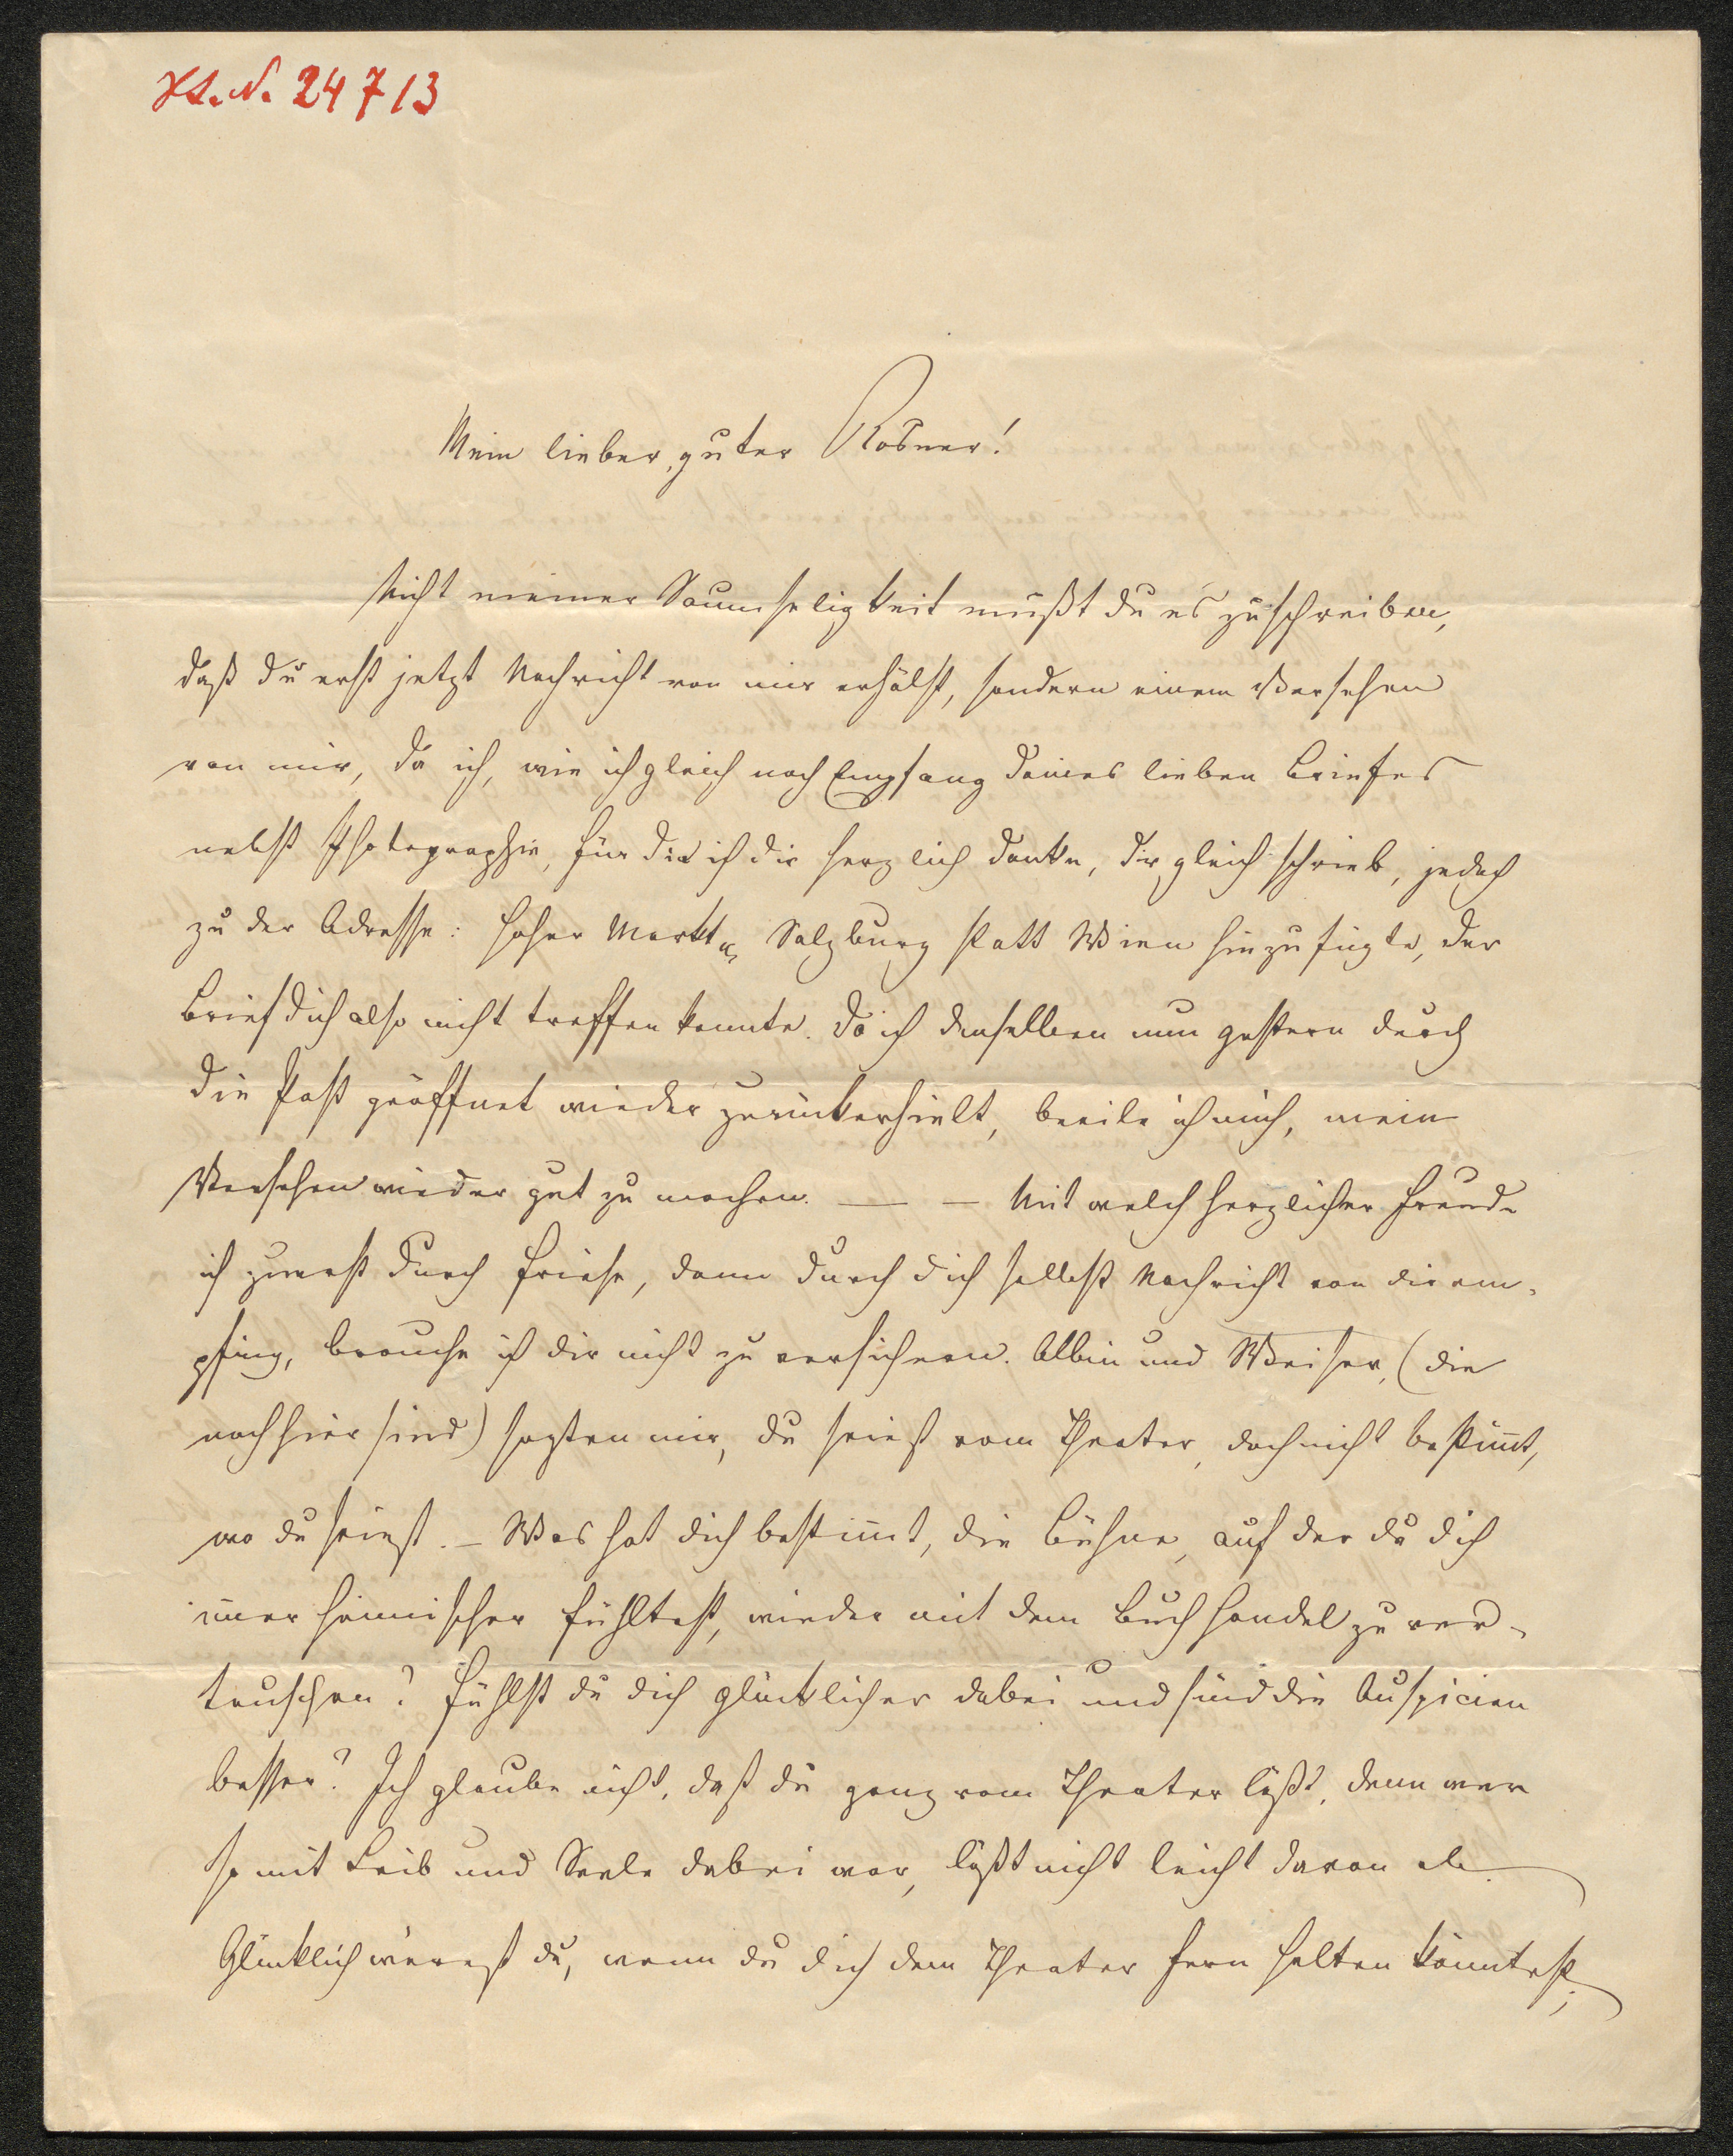 H.I.N. 24713
Mein lieber, guter Rosner!
Nicht meiner Saumseligkeit mußt du es zuschreiben,
daß du erst jetzt Nachricht von mir erhälst, sondern einem Versehen
von mir, da ich, wie ich gleich nach Empfang deines lieben Briefes
nebst Photographie, für die ich dir herzlich danke, dir gleich schrieb, jedoch
zu der Adresse: hoher Markt, Salzburg statt Wien hinzufügte, der
Brief dich also nicht treffen konnte. Da ich denselben nun gestern durch
die Post geöffnet wieder zurückerhielt, beeile ich mich, mein
Versehen wieder gut zu machen. — — Mit welch herzlicher Freude
ich zuerst durch Friese, dann durch dich selbst Nachricht von dir em-
pfing, brauche ich dir nicht zu versichern. Albin und Weiser, (die
noch hier sind) sagten mir, du seiest vom Theater, doch nicht bestim̄t,
wo du seiest. – Was hat dich bestim̄t, die Bühne, auf der du dich
im̄er heimischer fühltest, wieder mit dem Buchhandel zu ver-
tauschen? Fühlst du dich glücklicher dabei und sind die Auspicien
besser? Ich glaube nicht, daß du ganz vom Theater läßt, denn wer
so mit Leib und Seele dabei war, läßt nicht leicht davon ab.
Glücklich wärest du, wenn du dich dem Theater fern halten könntest;